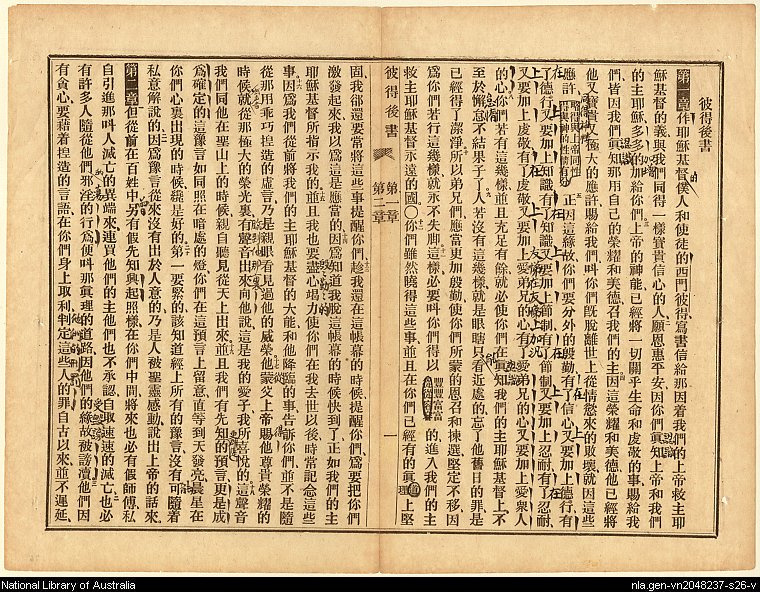 彼得後書
第一章 作耶穌基督僕人和使徒的西門彼得寫書信給那因着我們的上帝救主耶
穌基督的義與我們同得一樣寶貴信心的人願恩惠平安因你們眞知上帝和我們
的主耶穌多多的加給你們上帝的神能已經將一切關乎生命和虔敬的事賜給我
們皆因我們眞知那用自己的榮耀和美德召我們的主因這榮耀和美德他已經將
他又寶貴又極大的應許賜給我們叫你們旣脫離世上從情慾來的敗壞就因這些
應許 正因這緣故你們要分外的殷勤有了信心又要加上德行有
了德行又要加上知識有了知識又要加上節制有了節制又要加上忍耐有了忍耐
又要加上虔敬有了虔敬又要加上愛弟兄的心有了愛弟兄的心又要加上愛衆人
的心你們若有這幾樣並且充足有餘就必使你們在眞知我們的主耶穌基督上不
至於懈怠不結果子了人若沒有這幾樣就是眼瞎只看近處的忘了他舊日的罪是
已經得了潔淨所以弟兄們應當更加殷勤使你們所蒙的恩召和揀選堅定不移因
爲你們若行這幾樣就永不失脚這樣必要叫你們得以豐豐富富的進入我們的主
救主耶穌基督永遠的國〇你們雖然曉得這些事並且在你們已經有的眞道上堅
彼得後書 第一章 第二章 一
固我卻還要常將這些事提醒你們趁我還在這帳幕的時候提醒你們爲要把你們
激發起來我以爲這是應當的因爲知道我脫這帳幕的時候快到了正如我們的主
耶穌基督所指示我的並且我也要盡心竭力使你們在我去世以後時常記念這些
事因爲我們從前將我們的主耶穌基督的大能和他降臨的事告訴你們並不是隨
從那用乖巧揑造的虛言乃是親眼看見過他的威榮他蒙父上帝賜他尊貴榮耀的
時候就從那極大的榮光裏有聲音出來向他說這是我的愛子我所喜悅的這聲音
我們同他在聖山上的時候親自聽見從天上出來並且我們有先知的預言更是成
爲確定的這豫言如同照在暗處的燈你們在這預言上留意直等到天發亮晨星在
你們心裏出現的時候纔是好的第一要緊的該知道經上所有的豫言沒有可隨着
私意解說的因爲豫言從來沒有出於人意的乃是人被聖靈感動說出上帝的話來
第二章 但從前在百姓中另有假先知興起照樣在你們中間將來也必有假師傅私
自引進那叫人滅亡的異端來連買他們的主他們也不承認自取速速的滅亡也必
有許多人隨從他們邪淫的行爲便叫那眞理的道路因他們的緣故被謗瀆他們因
有貪心要藉着揑造的言語在你們身上取利判定這些人的罪自古以來並不遲延
National Library of Australia
nla.gen-vn2048237-s26-v